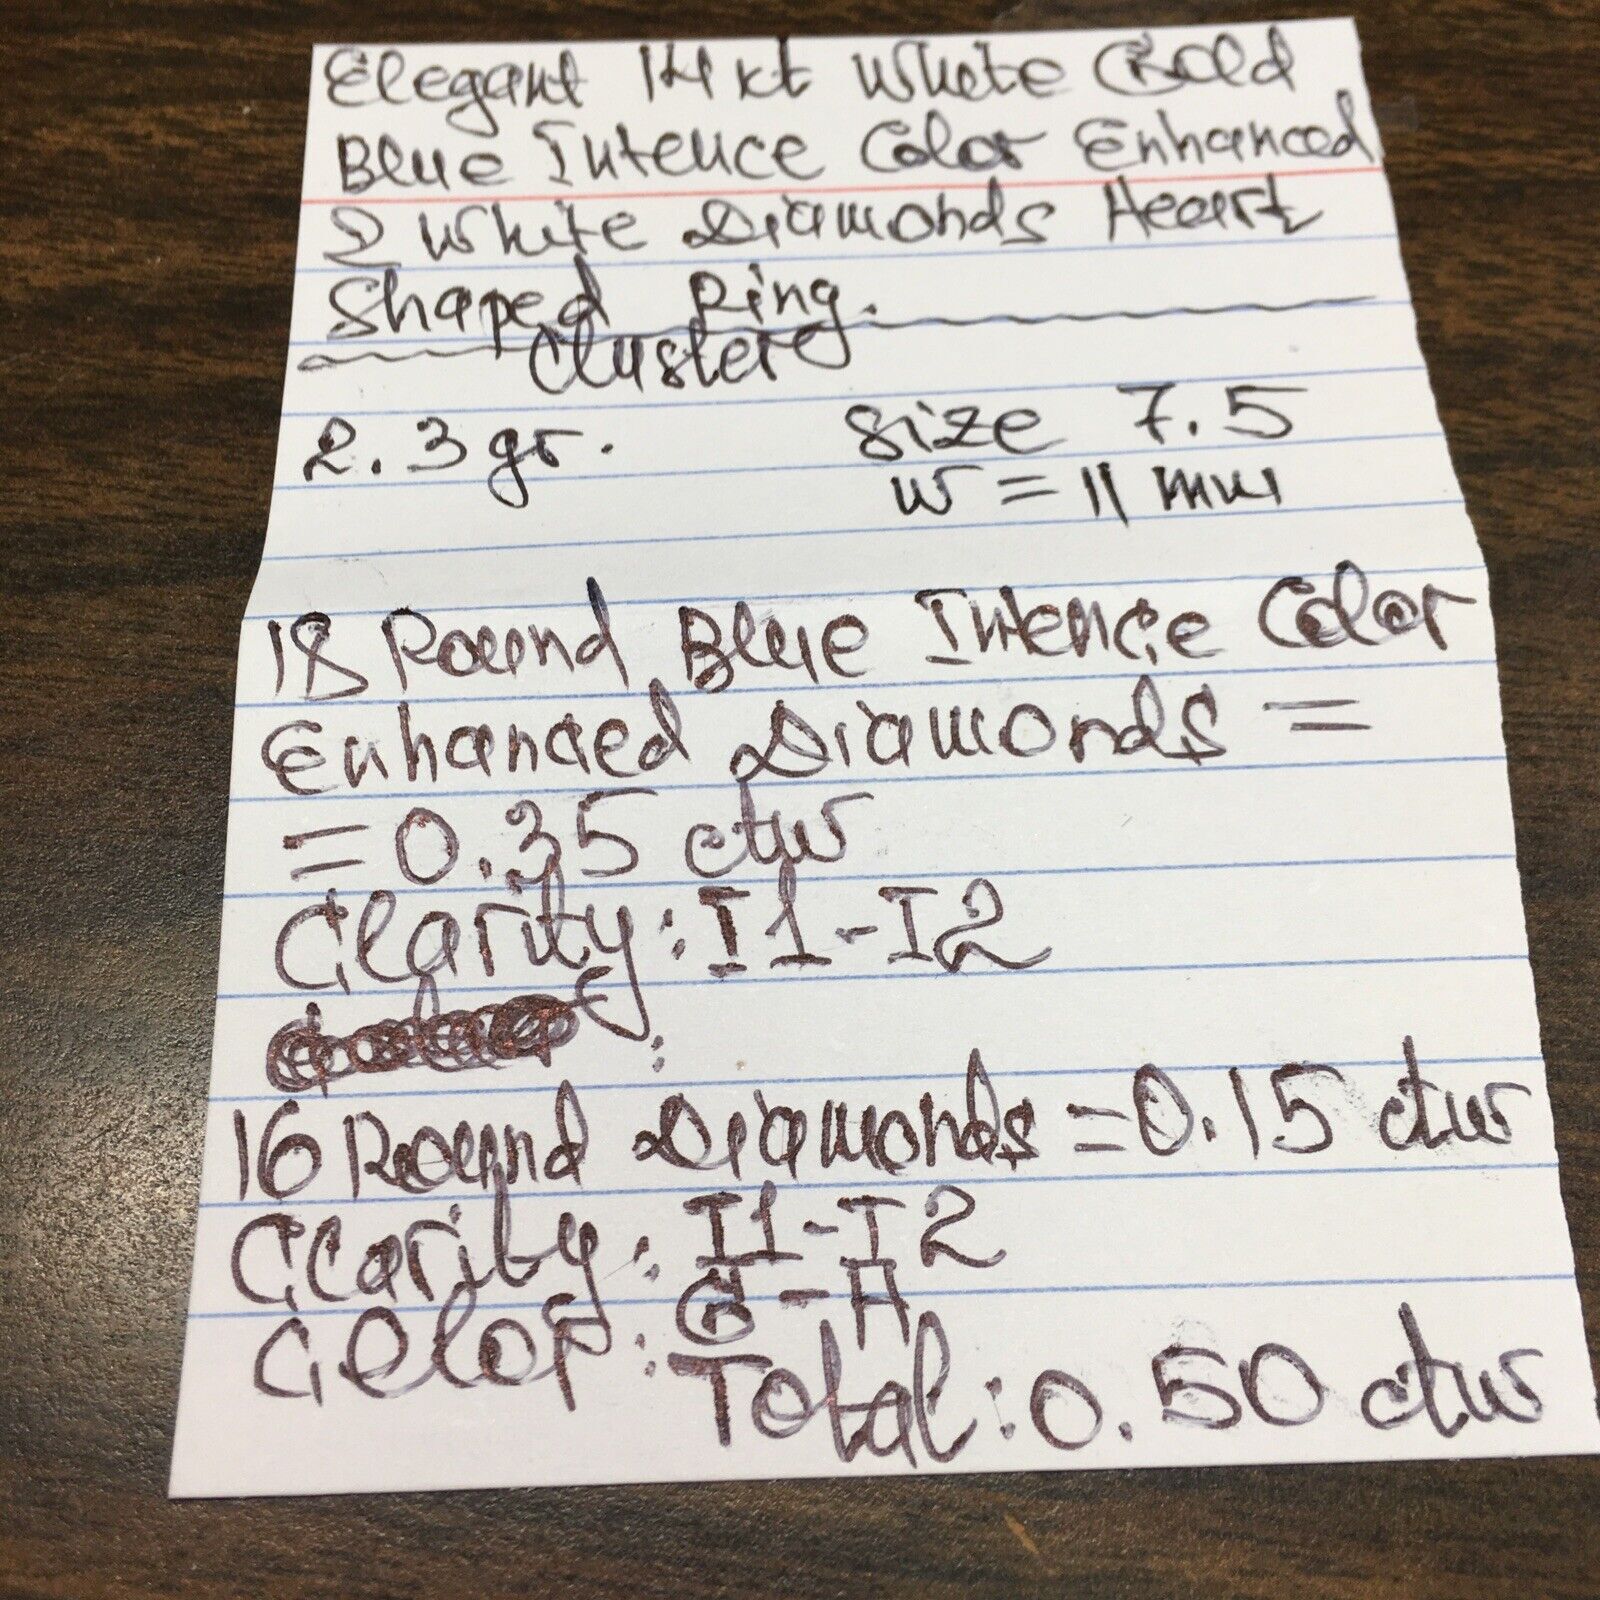 Elegant 14 kt White Gold
Blue Intence Color Enhanced
& White Diamonds Heart
Shaped Ring.
Cluster
2.3 gr. size 7.5
w = 11 mm
18 Round Blue Intence Color
Enhanced Diamonds =
= 0.35 ctw
Clarity: I1-I2
:
16 Round Diamonds = 0.15 ctw
Clarity: I1-I2
Color: G-H
Total: 0.50 ctw